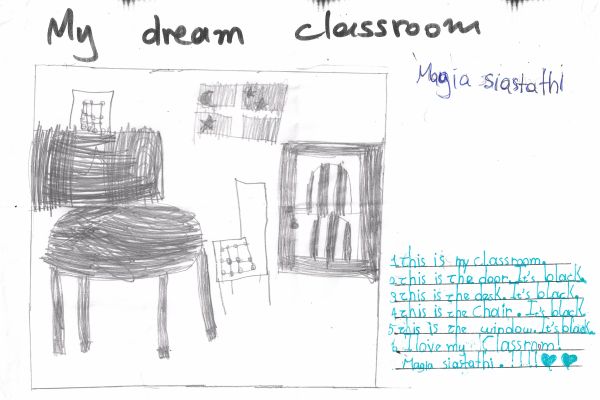 My dream classroom
Magia siastathi
1. this is my classroom.
2. this is the door. It's black.
3. this is the desk. It's black.
4. this is the chair. It's black
5. this is the window. It's black.
6. I love my Classroom!
Magia siastathi. !!!!